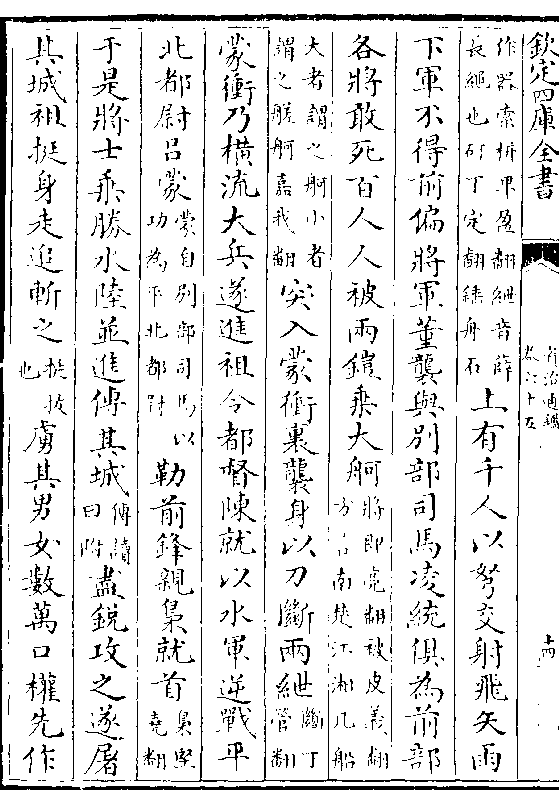 欽定四庫全書
資治通鑑
卷六十五
十四
作器索枡畀盈翻紲音薛
長繩也矴丁定翻錘舟石
上有千人以弩交射飛矢雨
下軍不得前偏將軍董襲與別部司馬凌統俱為前部
各將敢死百人人被兩鎧乘大舸
將即亮翻被皮義翻
方言南楚江湘凡船
大者謂之舸小者
謂之艖舸嘉我翻
突入蒙衝裏襲身以刀斷兩紲
斷丁
管翻
蒙衝乃橫流大兵遂進祖令都督陳就以水軍逆戰平
北都尉呂蒙
蒙自別部司馬以
功為平北都尉
勒前鋒親梟就首
梟堅
堯翻
于是將士乘勝水陸並進傅其城
傅讀
曰附
盡銳攻之遂屠
其城祖挺身走追斬之
挺拔
也
虜其男女數萬口權先作